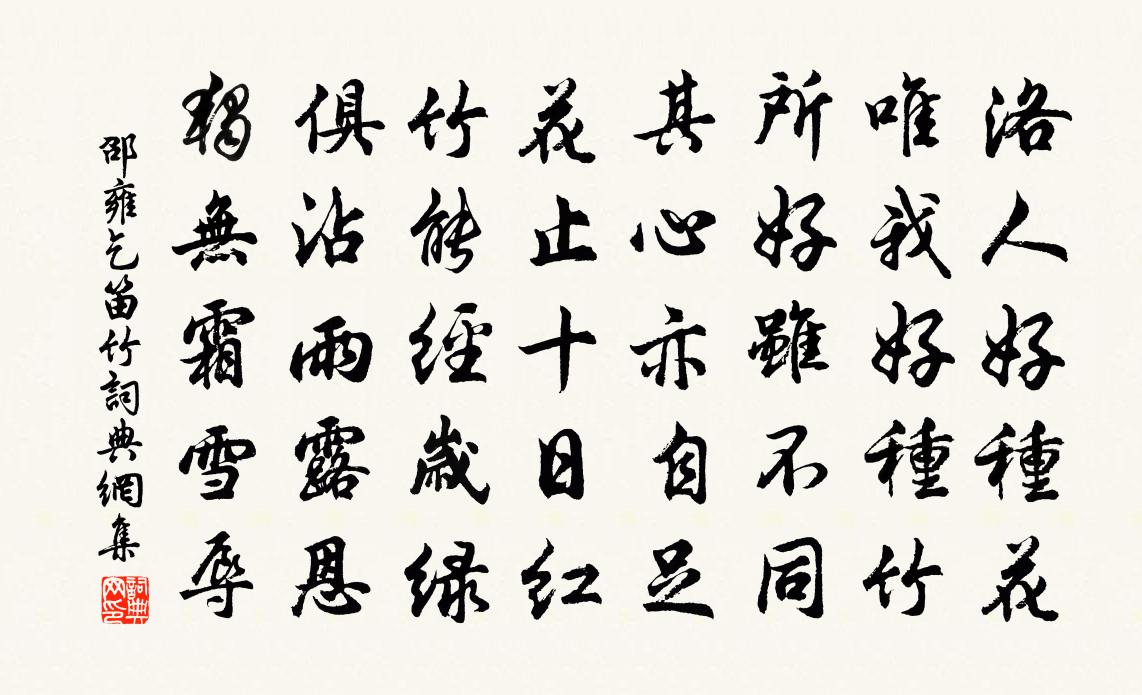 洛人好種花
唯我好種竹
所好雖不同
其心亦自足
花止十日紅
竹能經歲緑
俱沾雨露恩
獨無霜雪辱
邵雍乞笛竹詞典網集
詞典網印